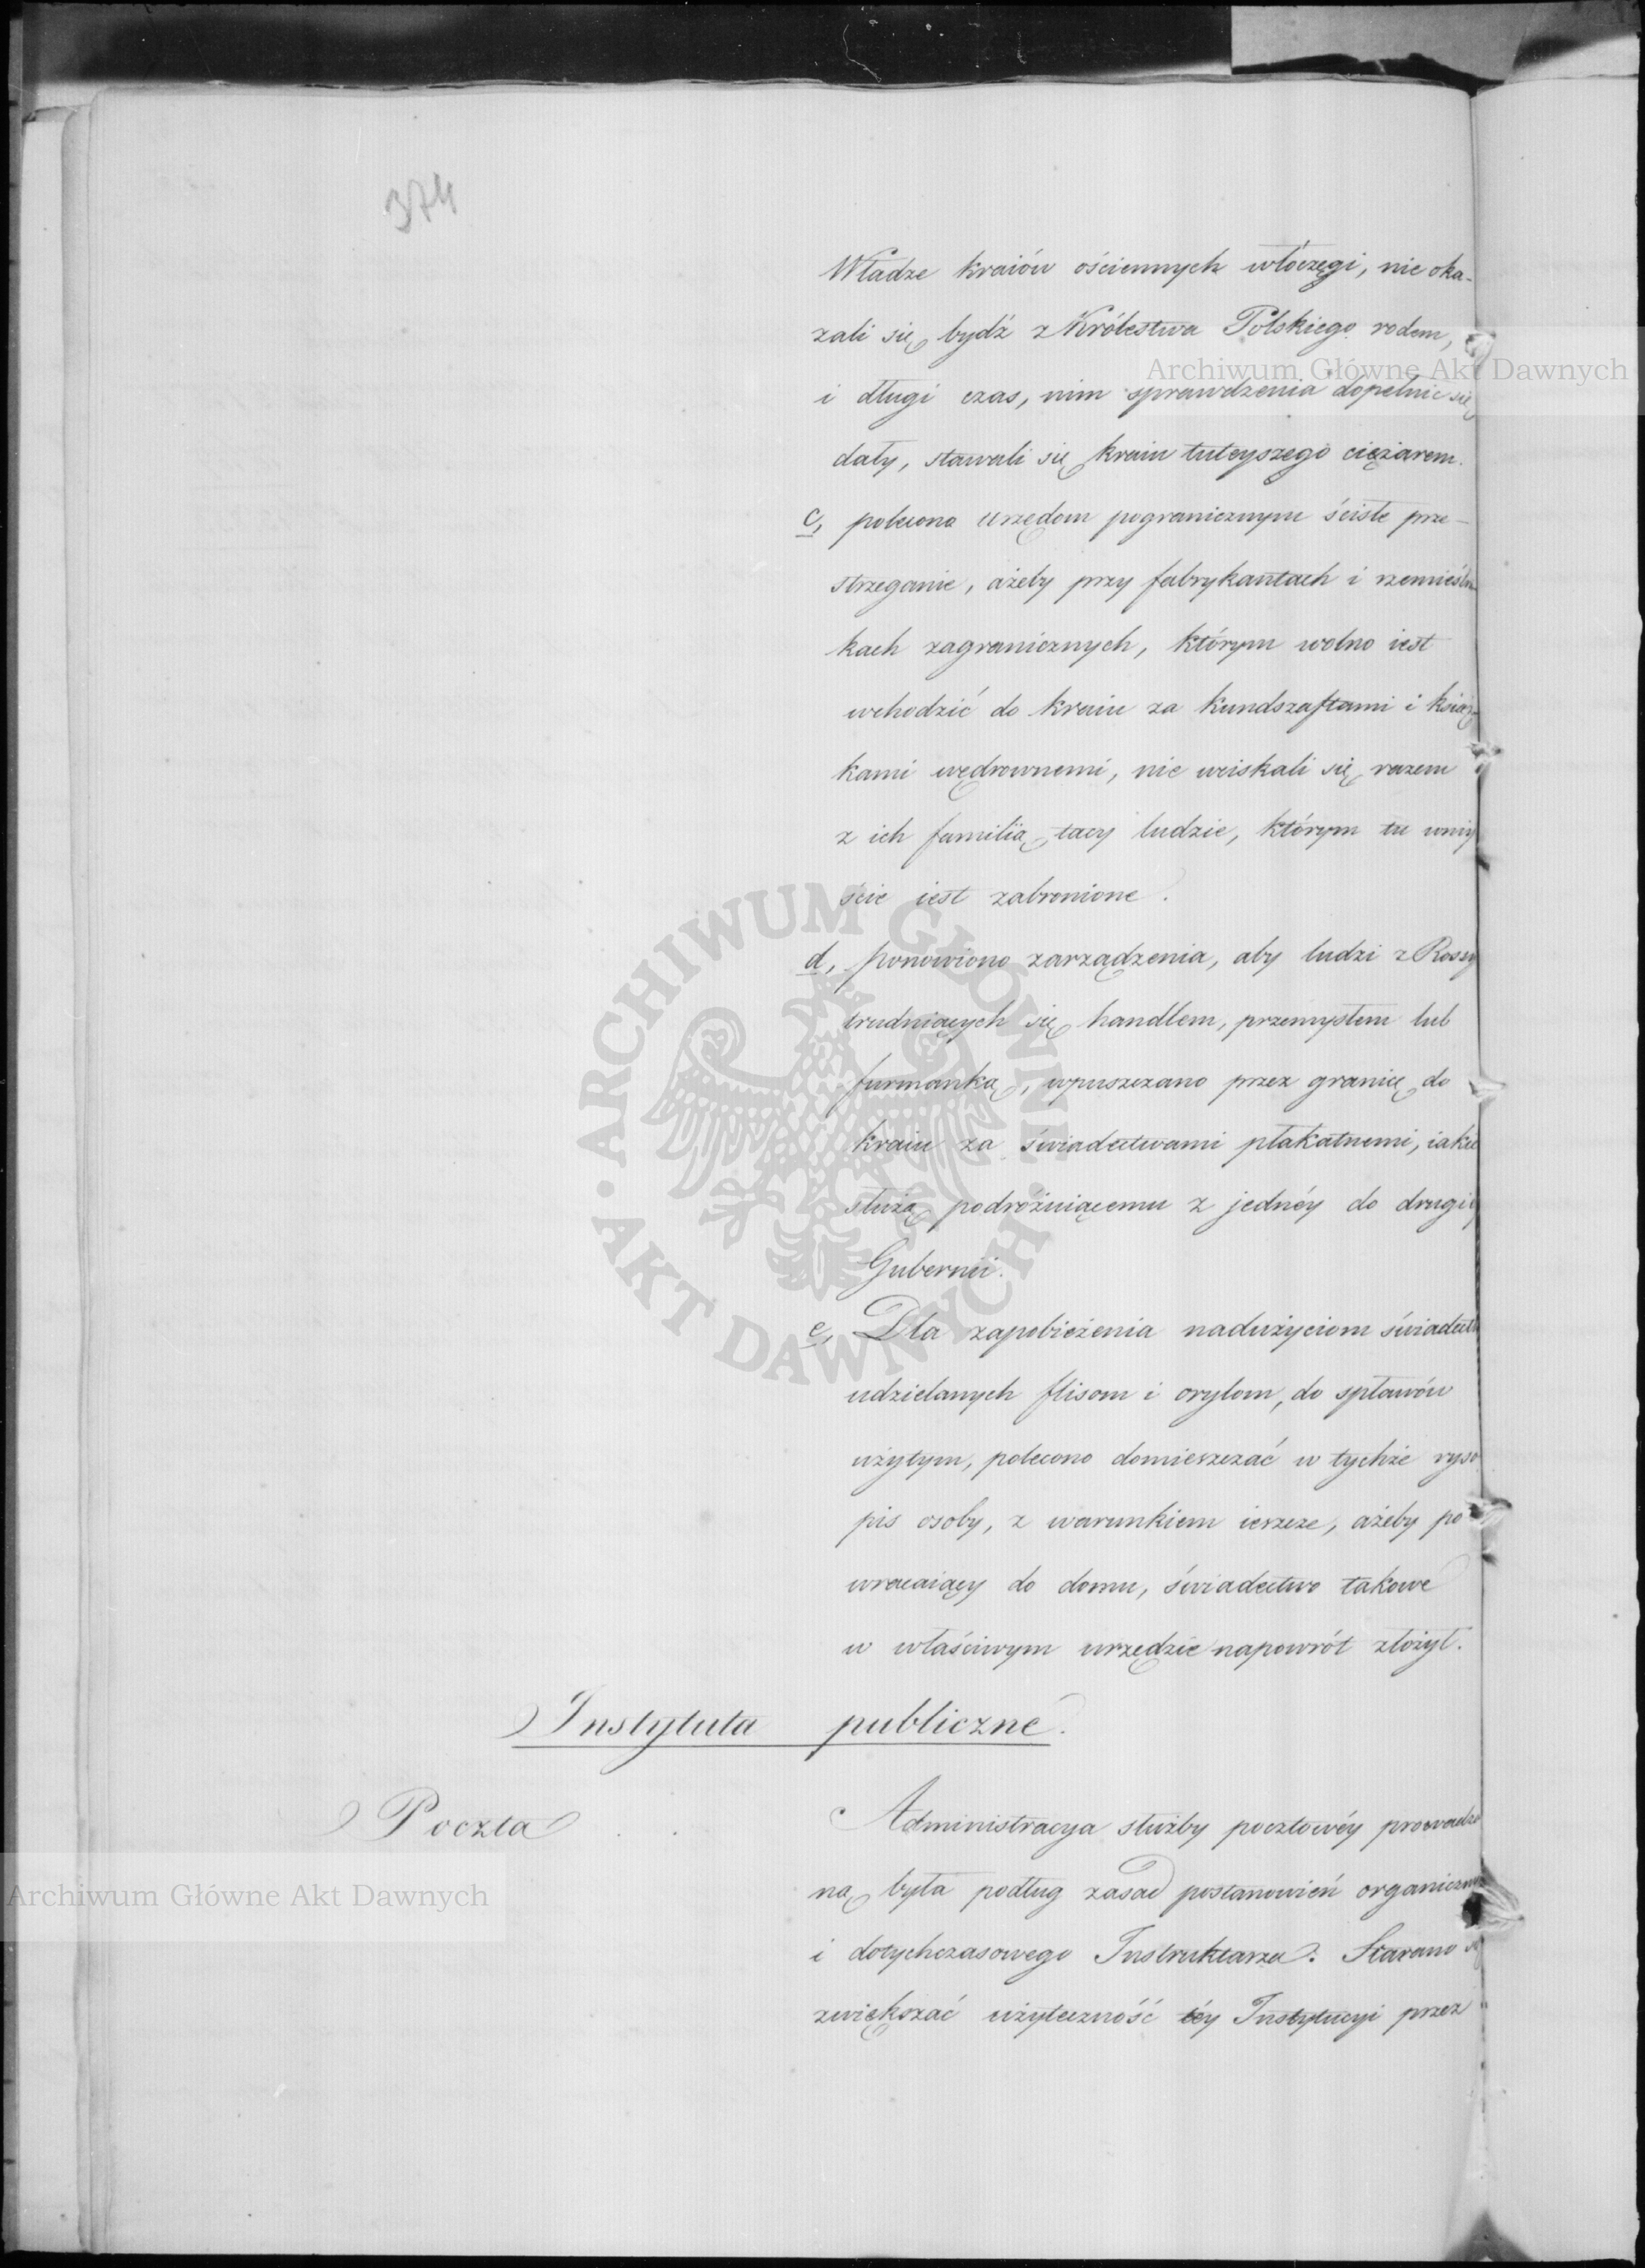 374
Władze kraiów ościennych włóczęgi, nie oka-
zali się bydź z Królestwa Polskiego rodem,
i długi czas, nim sprawdzenia dopełnić się
dały, stawali się kraiu tuteyszego ciężarem.
c, polecono urzędom pogranicznym ściste prze-
strzeganie, ażeby przy fabrykantach i rzemieśln
kach zagranicznych, którym wolno iest
wchodzić do kraiu za kundszaftami i książ
kami wędrownemi, nie wciskali się razem
z ich familią tacy ludzie, którym tu wniy
ście iest zabronione.
d, ponowiono zarządzenia, aby ludzi z Rossy
trudniących się handlem, przemysłem lub
furmanką, wpuszczano przez granicę do
kraiu za świadectwami plakatnemi, iakie
służą podróżuiącemu z jednéy do drugiéy
Gubernii.
e, Dla zapobieżenia nadużyciom świadectw
udzielanych flisom i orylom, do spławów
użytym, polecono domieszczać w tychże ryso
pis osoby, z warunkiem ieszcze, ażeby po
wracaiący do domu, świadectwo takowe
w właściwym urzędzie napowrót złożył.
Instytuta publiczne.
Poczta . .
Administracya służby pocztowéy prowadzo
ną była podług zasad postanowień organiczn
i dotychczasowego Instruktarza. Starano
zwiększać użyteczność téy Instytucyi przez
Archiwum Główne Akt Dawnych
ARCHIWUM GŁÓWNE · AKT DAWNYCH ·
Archiwum Główne Akt Dawnych